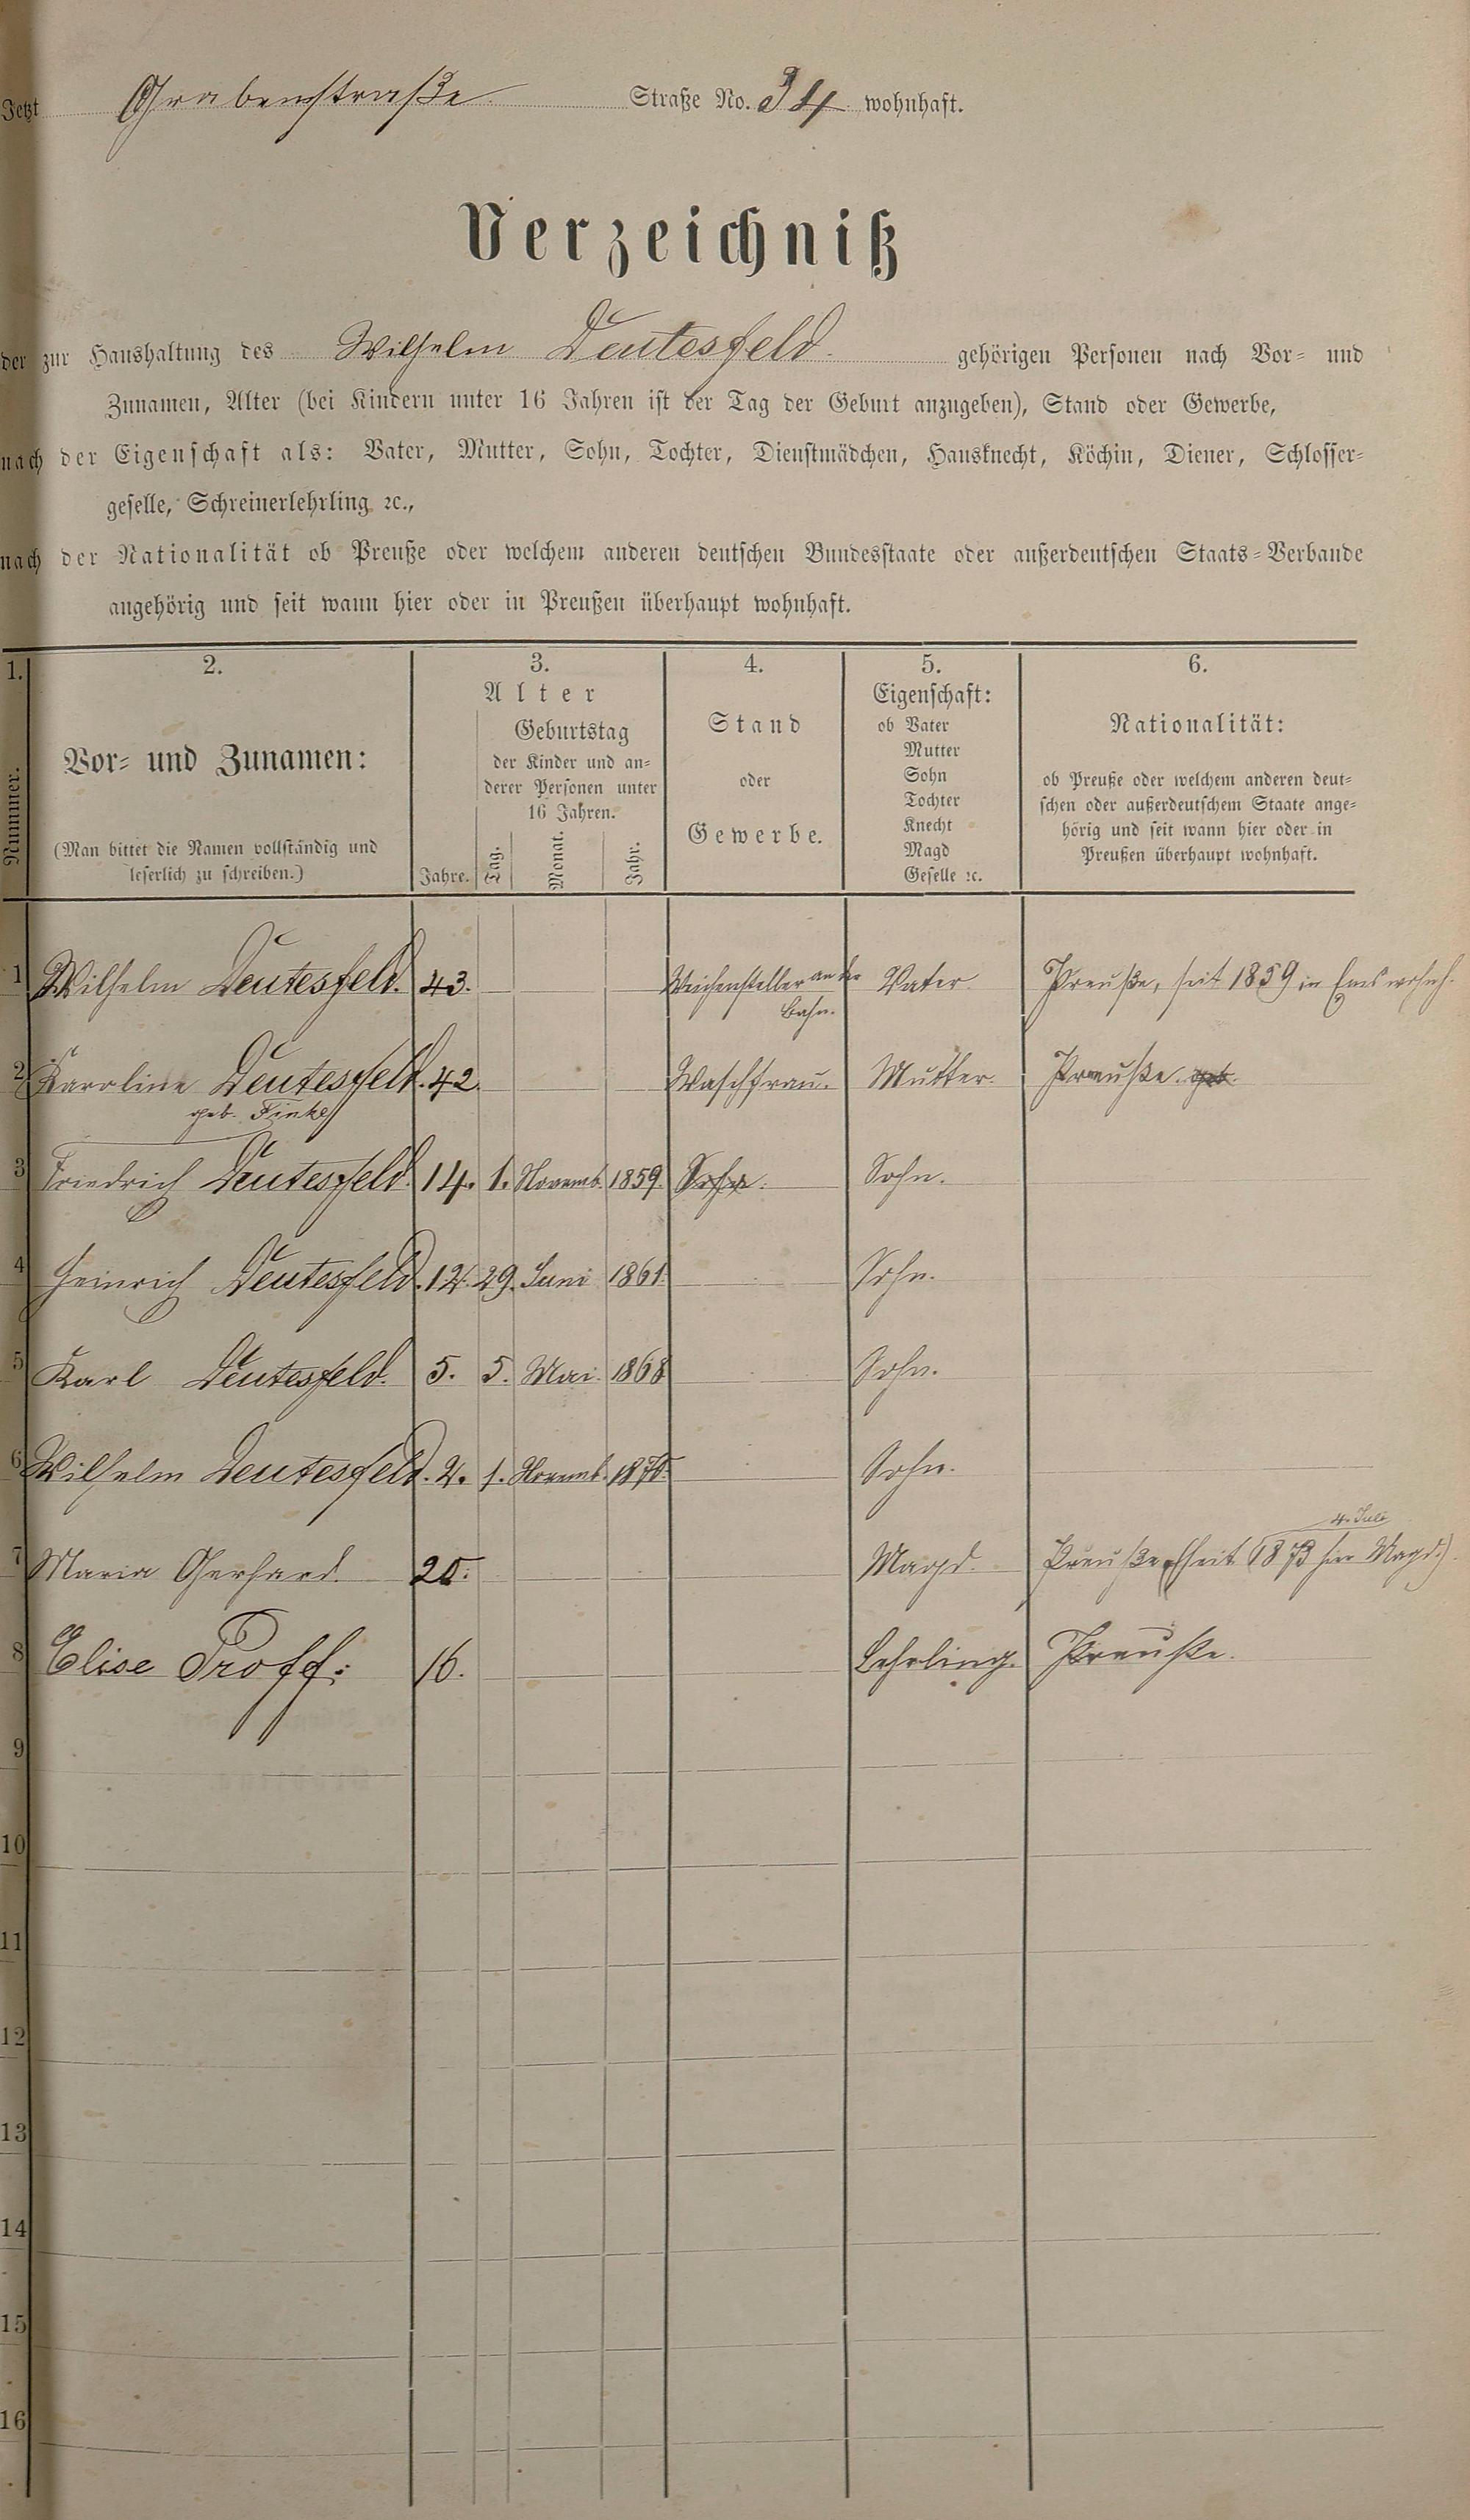 Jetzt Grabenstraße Straße No. 34 wohnhaft.
Verzeichniß
der zur Haushaltung des Wilhelm Deutesfeld. gehörigen Personen nach Vor- und
Zunamen, Alter (bei Kindern unter 16 Jahren ist der Tag der Geburt anzugeben), Stand oder Gewerbe,
nach der Eigenschaft als: Vater, Mutter, Sohn, Tochter, Dienstmädchen, Hausknecht, Köchin, Diener, Schlosser-
geselle, Schreinerlehrling ꝛc.,
nach der Nationalität ob Preuße oder welchem anderen deutschen Bundesstaate oder außerdeutschen Staats-Verbande
angehörig und seit wann hier oder in Preußen überhaupt wohnhaft.
1. 2. 3. 4. 5. 6.
Nummer.
Vor- und Zunamen:
(Man bittet die Namen vollständig und
leserlich zu schreiben.)
Alter
Geburtstag
der Kinder und an-
derer Personen unter
16 Jahren.
Jahre. Tag. Monat. Jahr.
Stand
oder
Gewerbe.
Eigenschaft:
ob Vater
Mutter
Sohn
Tochter
Knecht
Magd
Geselle ꝛc.
Nationalität:
ob Preuße oder welchem anderen deut-
schen oder außerdeutschem Staate ange-
hörig und seit wann hier oder in
Preußen überhaupt wohnhaft.
1 Wilhelm Deutesfeld. 43. Weichensteller an der Vater. Preuße, seit 1859 in Ems wohnh.
Bahn.
2 Karoline Deutesfeld. 42. Waschfrau. Mutter. Preuße. geb.
geb. Finke
3 Friedrich Deutesfeld. 14. 1. Novemb. 1859. Sohn. Sohn.
4 Heinrich Deutesfeld. 12. 29. Juni 1861. Sohn.
5 Karl Deutesfeld. 5. 5. Mai. 1868 Sohn.
6 Wilhelm Deutesfeld. 2. 1. Novemb. 1870. Sohn.
4. Juli
7 Maria Gerhard. 20. Magd. Preuße (seit 1873 hier Magd.)
8 Elise Proff: 16. Lehrling. Preuße.
9
10
11
12
13
14
15
16